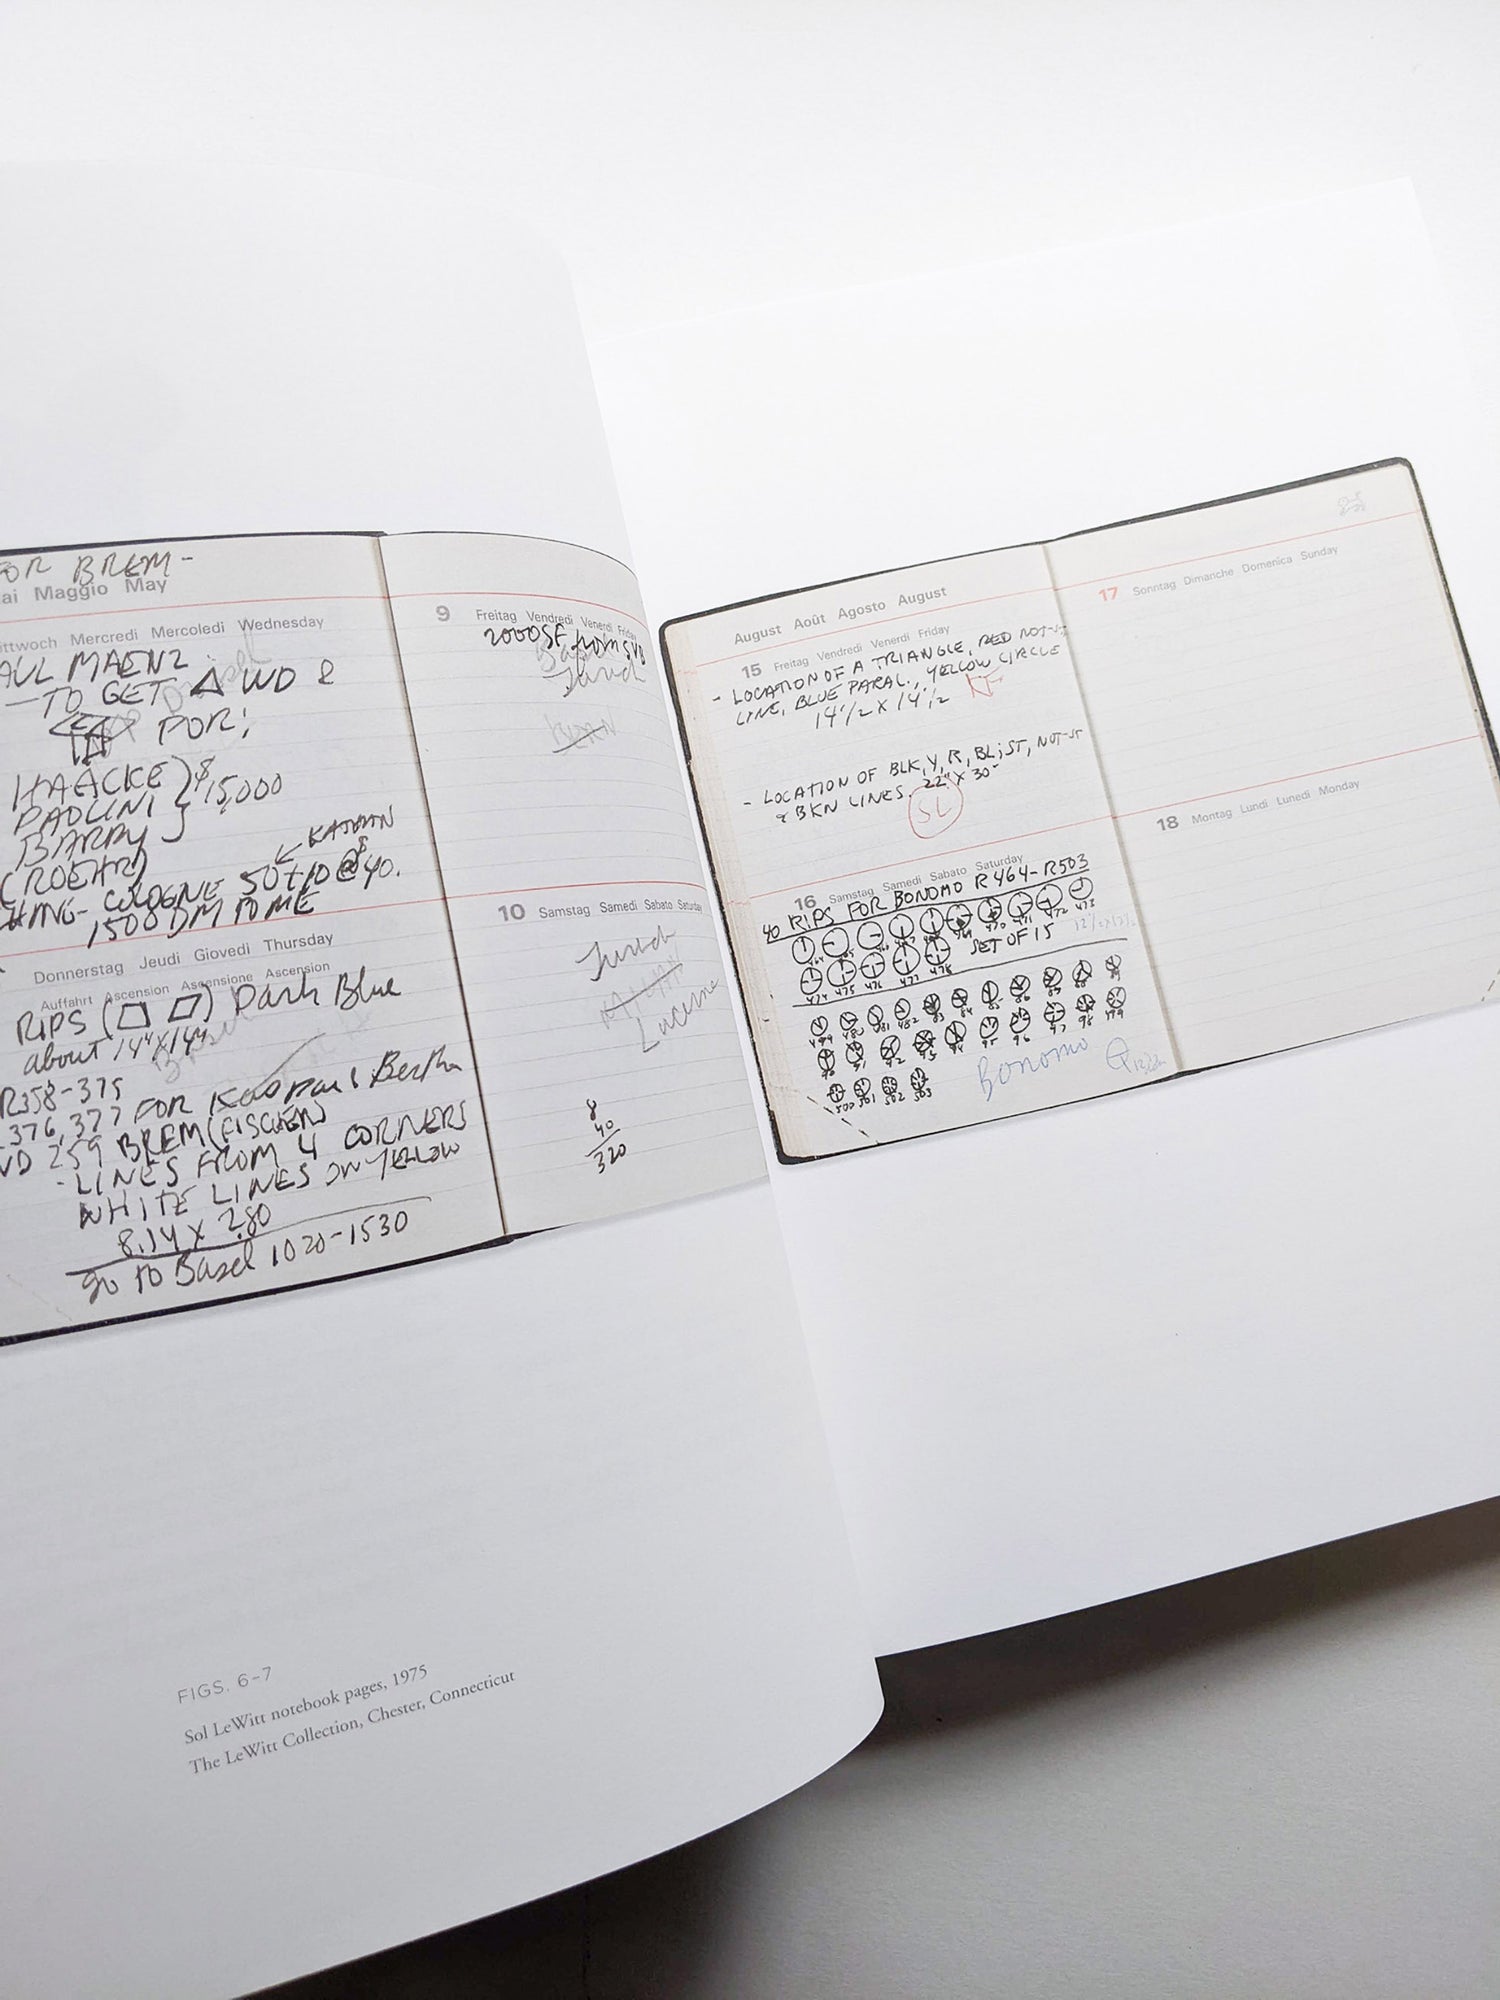 FOR BREM-
Mai Maggio May
Mittwoch Mercredi Mercoledi Wednesday
PAUL MAENZ
—TO GET △ WD &
FOR:
HAACKE } $
PAOLINI } 15,000
BARRY }
(ROEHR)
← KATHAN
COLOGNE 50+10 @ $40.
1500 DM TO ME
Donnerstag Jeudi Giovedi Thursday
Auffahrt Ascension Ascensione Ascension
RIPS ( ) Dark Blue
about 14"X14"
R358-375
376, 377 FOR Kaspar & Bertha
WD 259 BREM (FISCHER)
- LINES FROM 4 CORNERS
WHITE LINES ON YELLOW
8.14 X 2.80
go to Basel 1020-1530
9 Freitag Vendredi Venerdi Friday
2000 SF from SVB
Zurich
BERN
10 Samstag Samedi Sabato Saturday
Zurich
Lucerne
8
40
320
August Août Agosto August
15 Freitag Vendredi Venerdi Friday
- LOCATION OF A TRIANGLE, RED NOT-ST
LINE, BLUE PARAL., YELLOW CIRCLE
14½ X 14½
KF
- LOCATION OF BLK, Y, R, BL; ST, NOT-ST
& BKN LINES. 22" X 30"
SL
16 Samstag Samedi Sabato Saturday
40 RIPS FOR BONOMO R464-R503
469 470 471 472 473
474 475 476 477 478 SET OF 15
479 480 481 482 83 84 85 86 87 88 89
90 91 92 93 94 95 96 97 98 499
500 501 502 503
BONOMO
17 Sonntag Dimanche Domenica Sunday
18 Montag Lundi Lunedi Monday
FIGS. 6–7
Sol LeWitt notebook pages, 1975
The LeWitt Collection, Chester, Connecticut